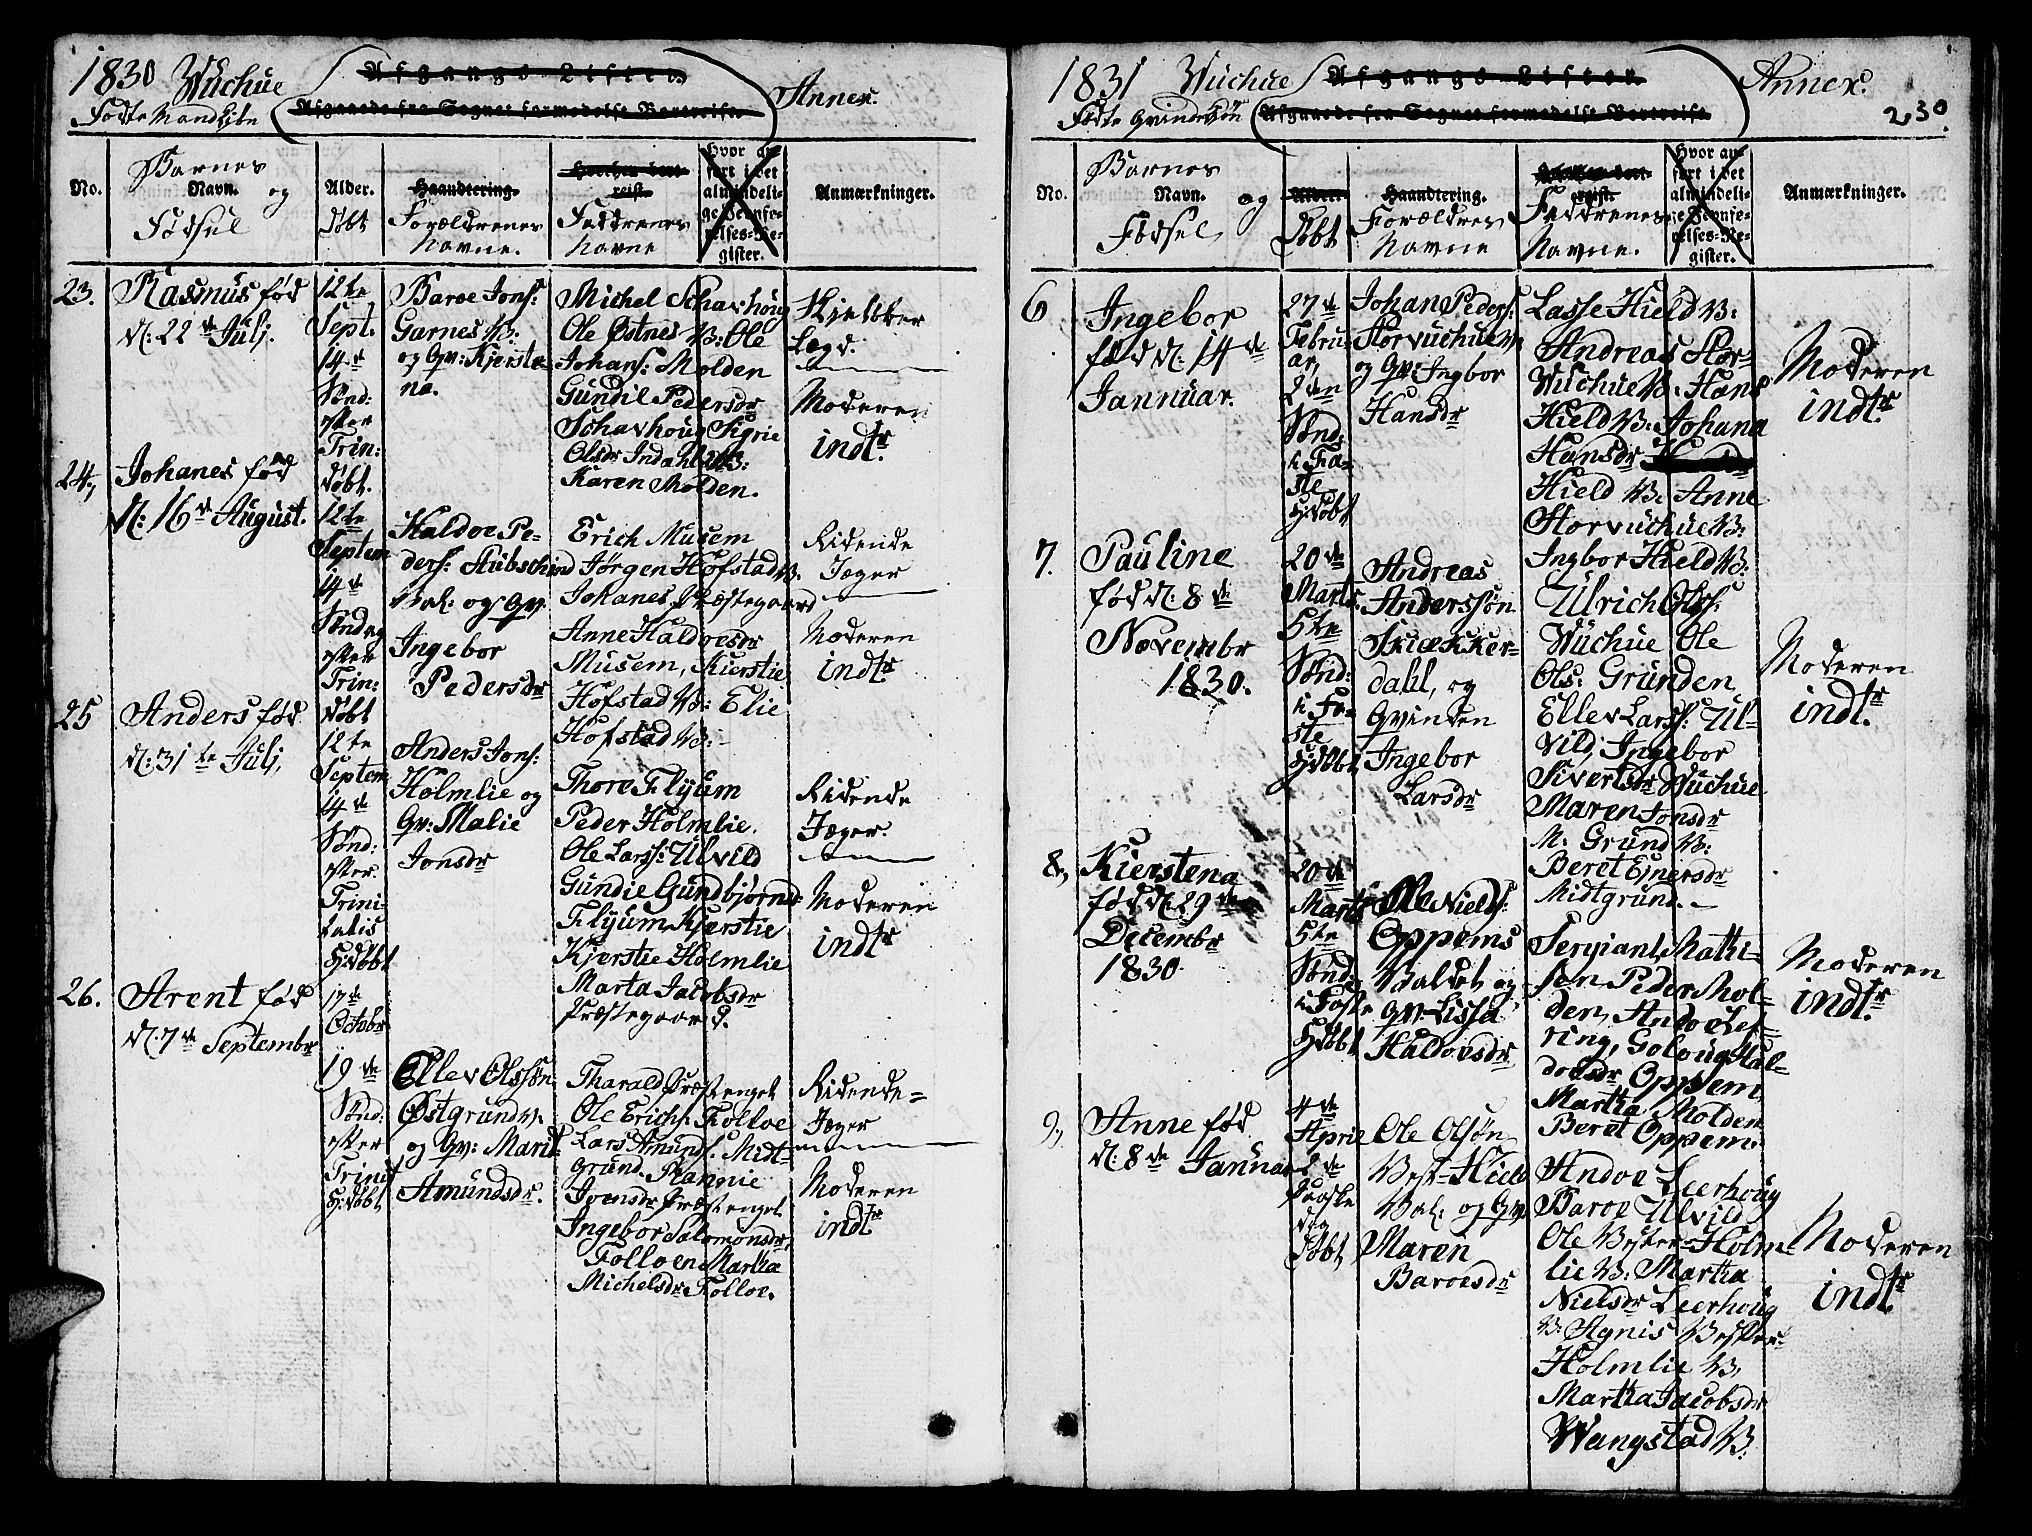 1830 Wuchue
Afgangs-Lister.
Annex.
Fødte Mandkiøn
Afgaaede fra Sognet formedelst Bortreise
No.
Barnes
Navn. og
Fødsel
Alder.
Døbt
Haandtering.
Forældrenes
Navne.
Hvorhen bort-
reist.
Faddrenes
Navne
Hvor an-
ført i det
almindeli-
ge Jevnfø-
relses-Re-
gister.
Anmærkninger.
23.
Rasmus fød
d: 22de Julj.
12te
Sept:
14de
Sønd:
efter
Trin:
døbt.
Baroe Jons:
Garnes W:
og Qv: Kjersti-
na.
Michel Schavhoug
Ole Østnes W: Ole
Johans: Molden
Gundil Pedersdr
Schavhoug Sigrie
Olsdr Indahl W:
Karen Molden.
Skjøtter
Lægd.
Moderen
indtr.
24,
Johanes fød
d: 16de August.
12te
Septem
14de
Søndag
efter
Trin:
døbt
Haldoe Pe-
ders: Stubschind
Bak: og Qv:
Ingebor
Pedersdr
Erich Musem
Jørgen Hofstad W.
Johanes Præstegaard
Anne Haldoesdr
Musem, Kierstie
Hofstad W: Elie
Hofstad W:
Ridende
Jæger
Moderen
indtr
25
Anders fød
d: 31te Julj,
12te
Septem
14de
Sønd:
efter
Trini-
tatis
Hdøbt
Anders Jons:
Holmlie og
Qv: Malie
Jonsdr
Thore Flyum
Peder Holmlie.
Ole Larss: Ulvild
Gundie Gundbjørnsd
Flyum Kjerstie
Kjerstie Holmlie
Marta Jacobsdr
Præstegaard.
Ridende
Jæger.
Moderen
indtr
26.
Arent fød
d: 7de Septembr
17de
Octobr
19de
Sønd:
efter
Trinit
Hdøbt
Ellev Olssøn
Østgrund W.
og Qv: Marit
Amundsdr.
Tharald Præstenget
Ole Erichs: Folloe
Lars Amunds. Midt-
grund. Rannie
Joensdr Præstenget
Ingebor Salomonsdr,
Folloen Martha
Michelsdr Folloe.
Ridende-
Jæger
Moderen
indtr
1831 Wuchue
Afgangs-Lister.
Annex.
Fødte Qvindekiøn
Afgaaede fra Sognet formedelst Bortreise
230.
No.
Barnes
Navn. og
Fødsel
Alder.
Døbt
Haandtering.
Forældres
Navne
Hvorhen bort-
reist.
Faddrenes
Navne.
Hvor an-
ført i det
almindeli-
ge Jevnfø-
relses-Re-
gister.
Anmærkninger.
6
Ingebor
fød d: 14de
Januar.
27de
Febru-
ar,
2den
Sønd:
i Fa-
ste
Hdøbt
Johan Peders:
Storvuchue W
og Qv: Ingbor
Hansdr
Lasse Hield W:
Andreas Stor-
Wuchue W. Hans
Hield W: Johana
Hansdr
Hield W: Anne
Storvuchue W:
Ingbor Hield W:
Moderen
indtr
7.
Pauline
fød d: 8de
Novembr
1830.
20de
Marts.
5te
Sønd:
i Fa-
ste
Hdøbt
Andreas
Anderssøn
Skiækker-
dahl, og
Qvinden
Ingebor
Larsdr
Ulrich Ols:
Wuchue Ole
Ols: Grunden,
Ellev Larss: Ul-
vild, Ingebor
Sivertsdr Wuchue
Maren Jonsdr
M. Grund W:
Beret Ejnersdr
Midtgrund.
Moderen
indtr
8,
Kierstena
fød d: 29de
Decembr
1830
20de
Marts
5te
Sønd:
i Faste
Hdøbt
Ole Niels:
Oppems
Valdet og
Qv: Lissa
Haldoesdr
Sergiant Mathi-
sen Peder Mol-
den, Andoe Ler-
ring, Goloug Hal-
doesdr Oppem,
Martha Molden
Beret Oppem.
Moderen
indtr
9,
Anne fød
d: 8de Janua
4de
Aprie
2de
Paaske
dag
Døbt
Ole Olsøn
Vest-Hield
Bak: og Qv
Maren
Baroesdr
Andoe Leerhoug
Baroe Ulvild,
Ole Vester-Holm-
lie W: Martha
Nielsdr Leerhoug
W: Agnis Vester-
Holmlie W,
Martha Jacobsdr
Wangstad W.
Moderen
indtr